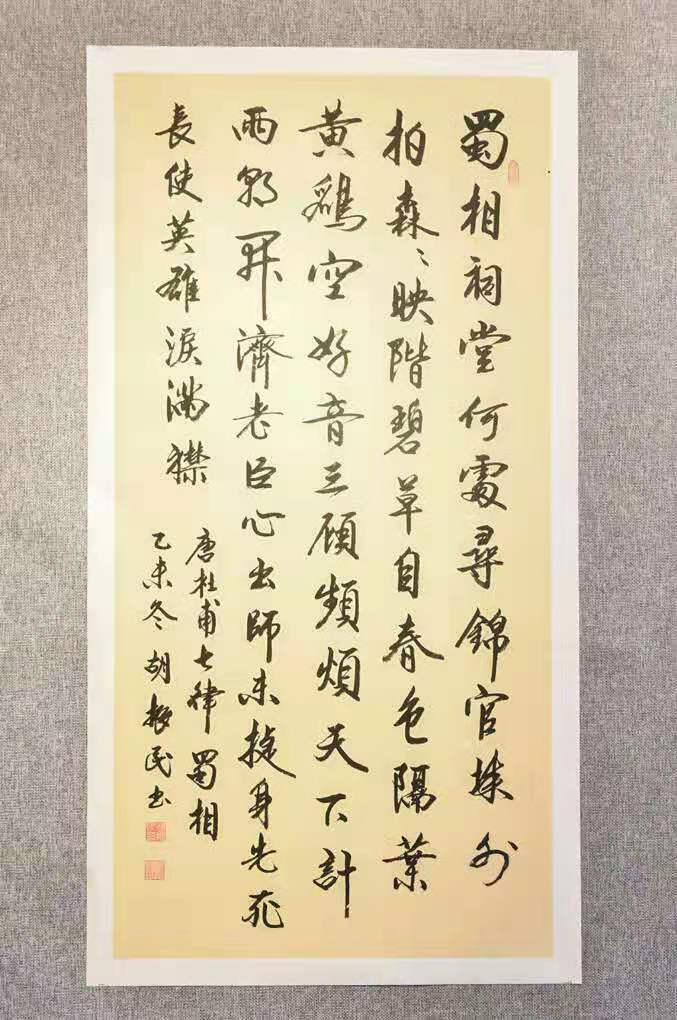 蜀相祠堂何處尋錦官城外
柏森〻映階碧草自春色隔葉
黃鸝空好音三顧頻煩天下計
兩朝開濟老臣心出師未捷身先死
長使英雄淚滿襟
唐杜甫七律蜀相
乙未冬胡振民书